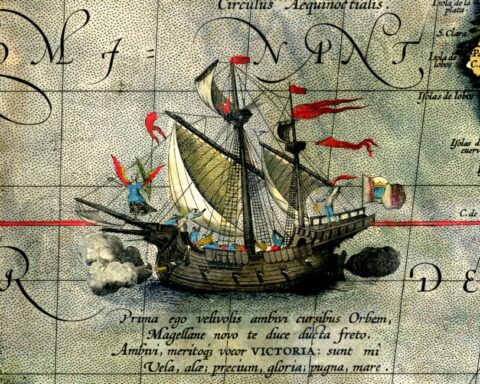 Circulus Aequinoctialis.
Isola de la
plata
M A = NANT
S. Clara
Isola de
lobos
Isolas de lobos
Isolas d
cuerv
C. de
R DE
Prima ego velivolis ambivi cursibus Orbem,
Magellane novo te duce ducta freto.
Ambivi, meritoq; vocor VICTORIA: sunt mî
Vela, alæ; precium, gloria; pugna, mare.